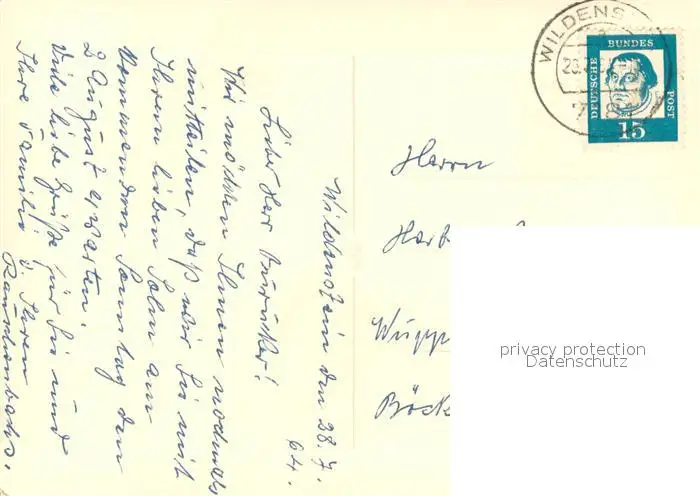 Wildenstein den 28. 7.
64.
Lieber Herr
Wir möchten Ihnen nochmals
mitteilen, daß wir Sie mit
Ihrem lieben Sohn am
kommenden Sonntag den
2 August erwarten.
Viele liebe Grüße für Sie und
Ihre Familie v. Ihren
Herrn
Wupp
Böck
WILDENS
DEUTSCHE
BUNDES
POST
15
privacy protection
Datenschutz